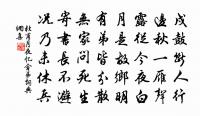 戍鼓斷人行
邊秋一雁聲
露從今夜白
月是故鄉明
有弟皆分散
無家問死生
寄書長不避
況乃未休兵
杜甫月夜憶舍弟詞典
網